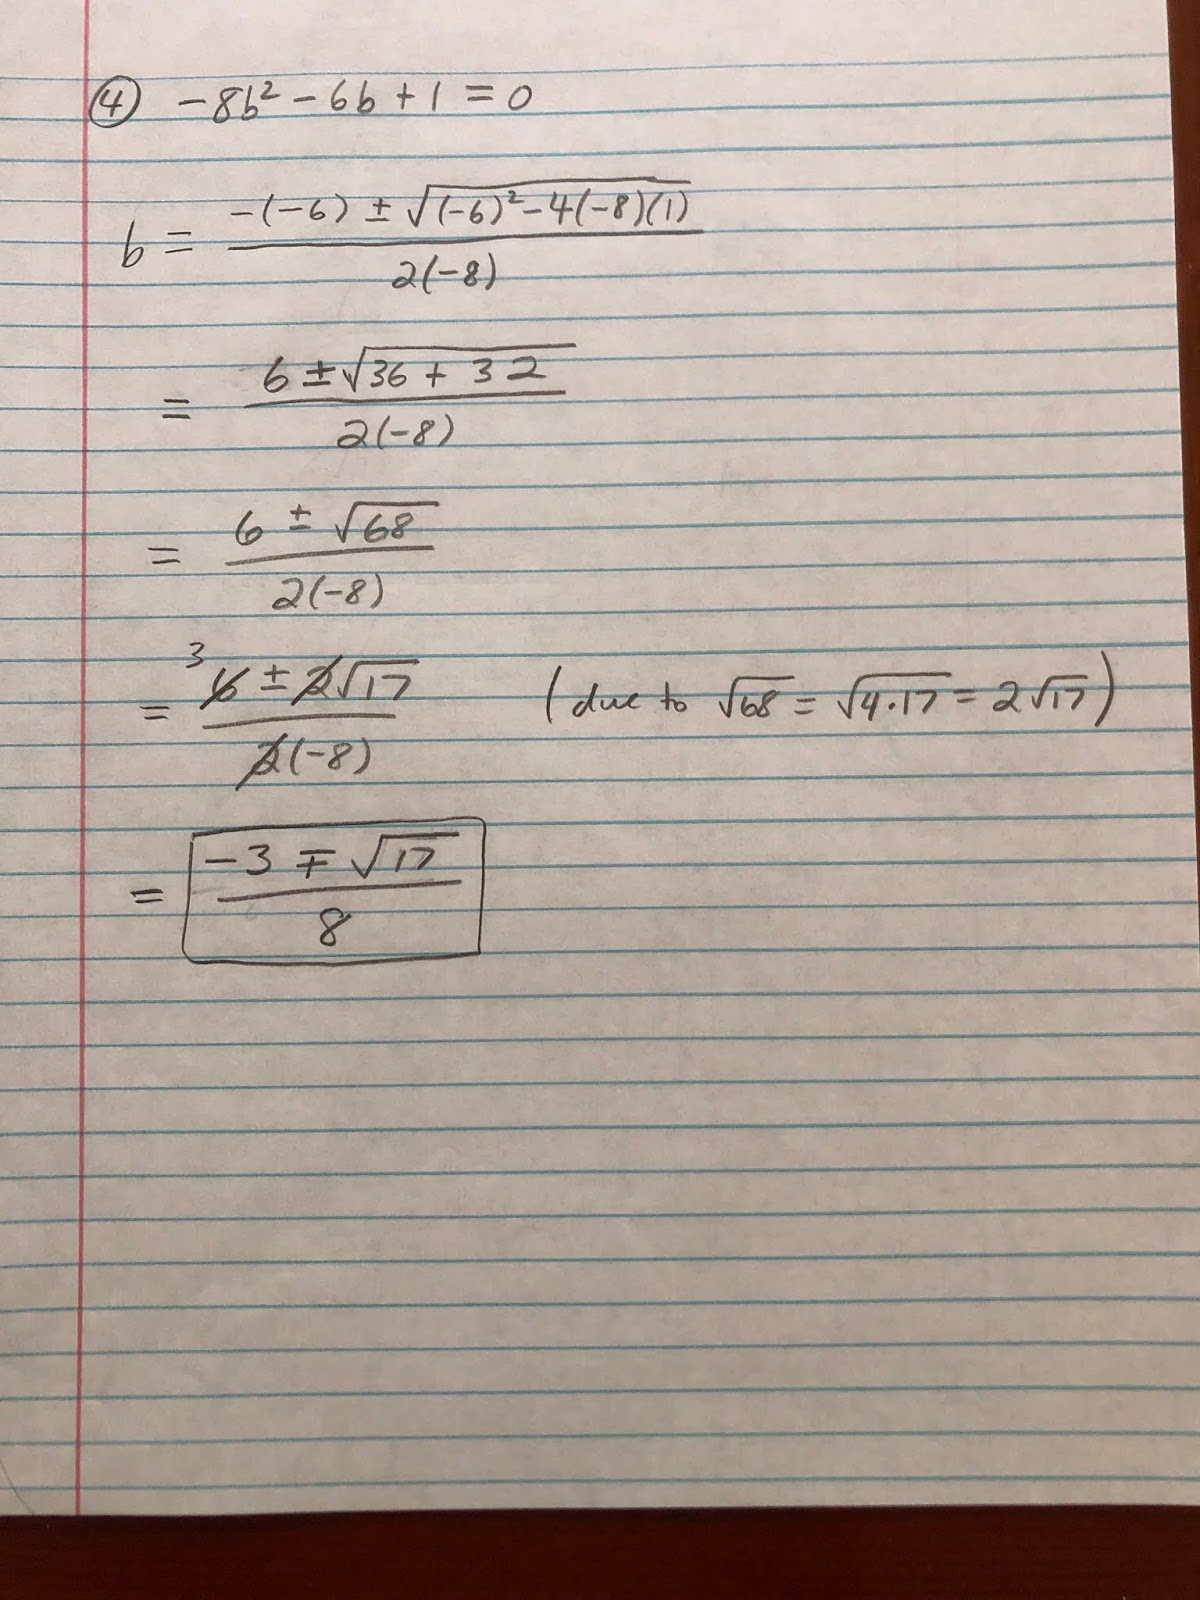 ④ -8b² - 6b + 1 = 0
b = (-(-6) ± √((-6)² - 4(-8)(1))) / (2(-8))
= (6 ± √(36 + 32)) / (2(-8))
= (6 ± √68) / (2(-8))
= 3 (6 ± 2√17) / (2(-8)) (due to √68 = √(4·17) = 2√17)
= (-3 ∓ √17) / 8